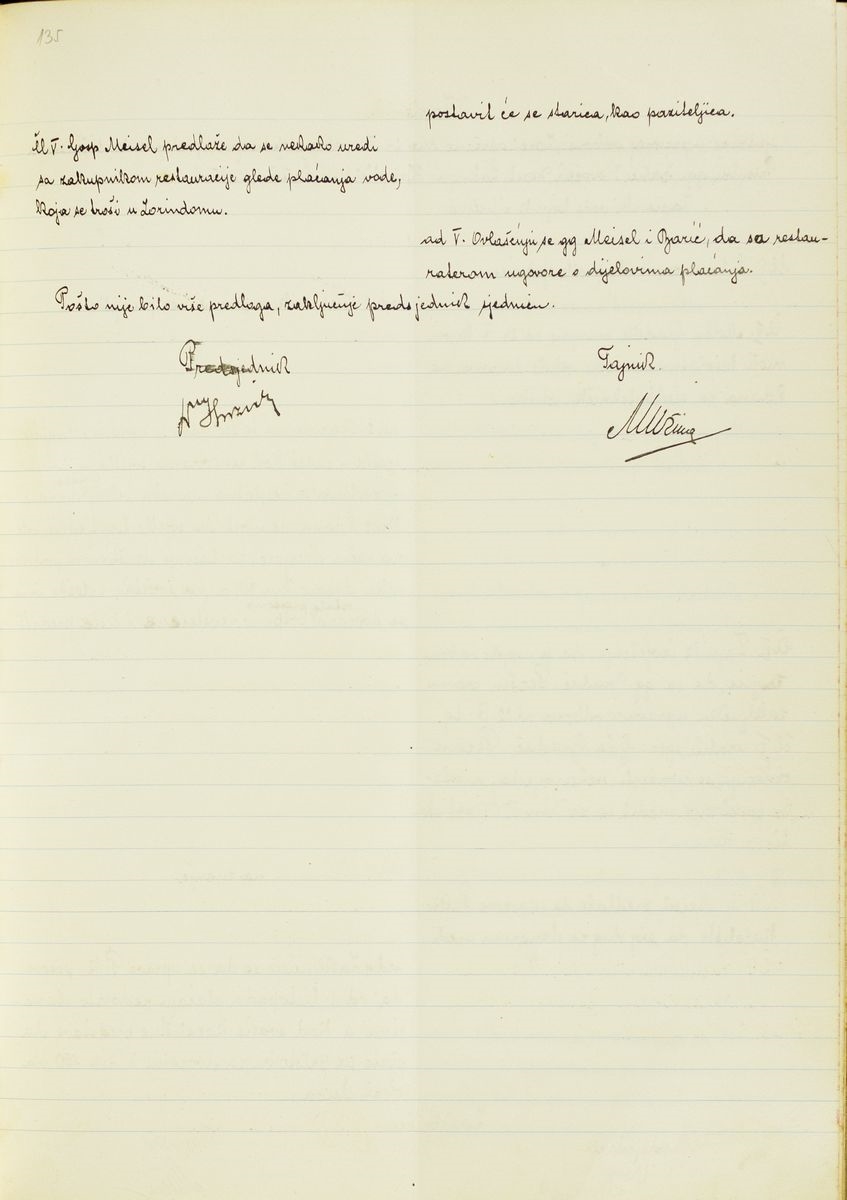 135
postavit će se starica, kao paziteljica.
Čl V. Gosp Meisel predlaže da se nekako uredi
sa zakupnikom restauracije glede plaćanja vode,
koja se troši u Zorindomu.
ad V. Ovlašćuju se gg Meisel i Barić, da sa restau-
raterom ugovore o dijelovima plaćanja.
Pošto nije bilo više predloga, zaključuje predsjednik sjednicu.
Predsjednik
Tajnik